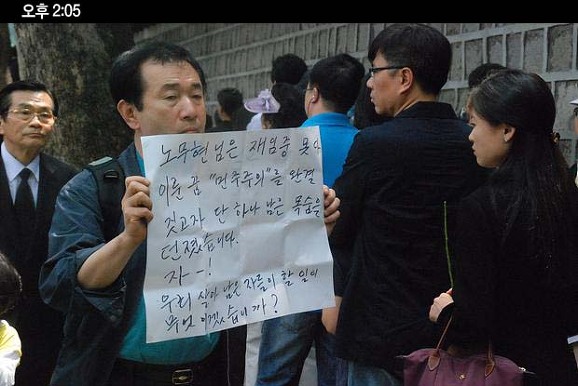 오후 2:05
노무현님은 재임중 못
이룬 꿈 "민주주의"를 완결
짓고자 단 하나 남은 목숨을
던졌습니다.
자--!
우리 살아 남은 자들이 할 일이
무엇 이겠습니까?